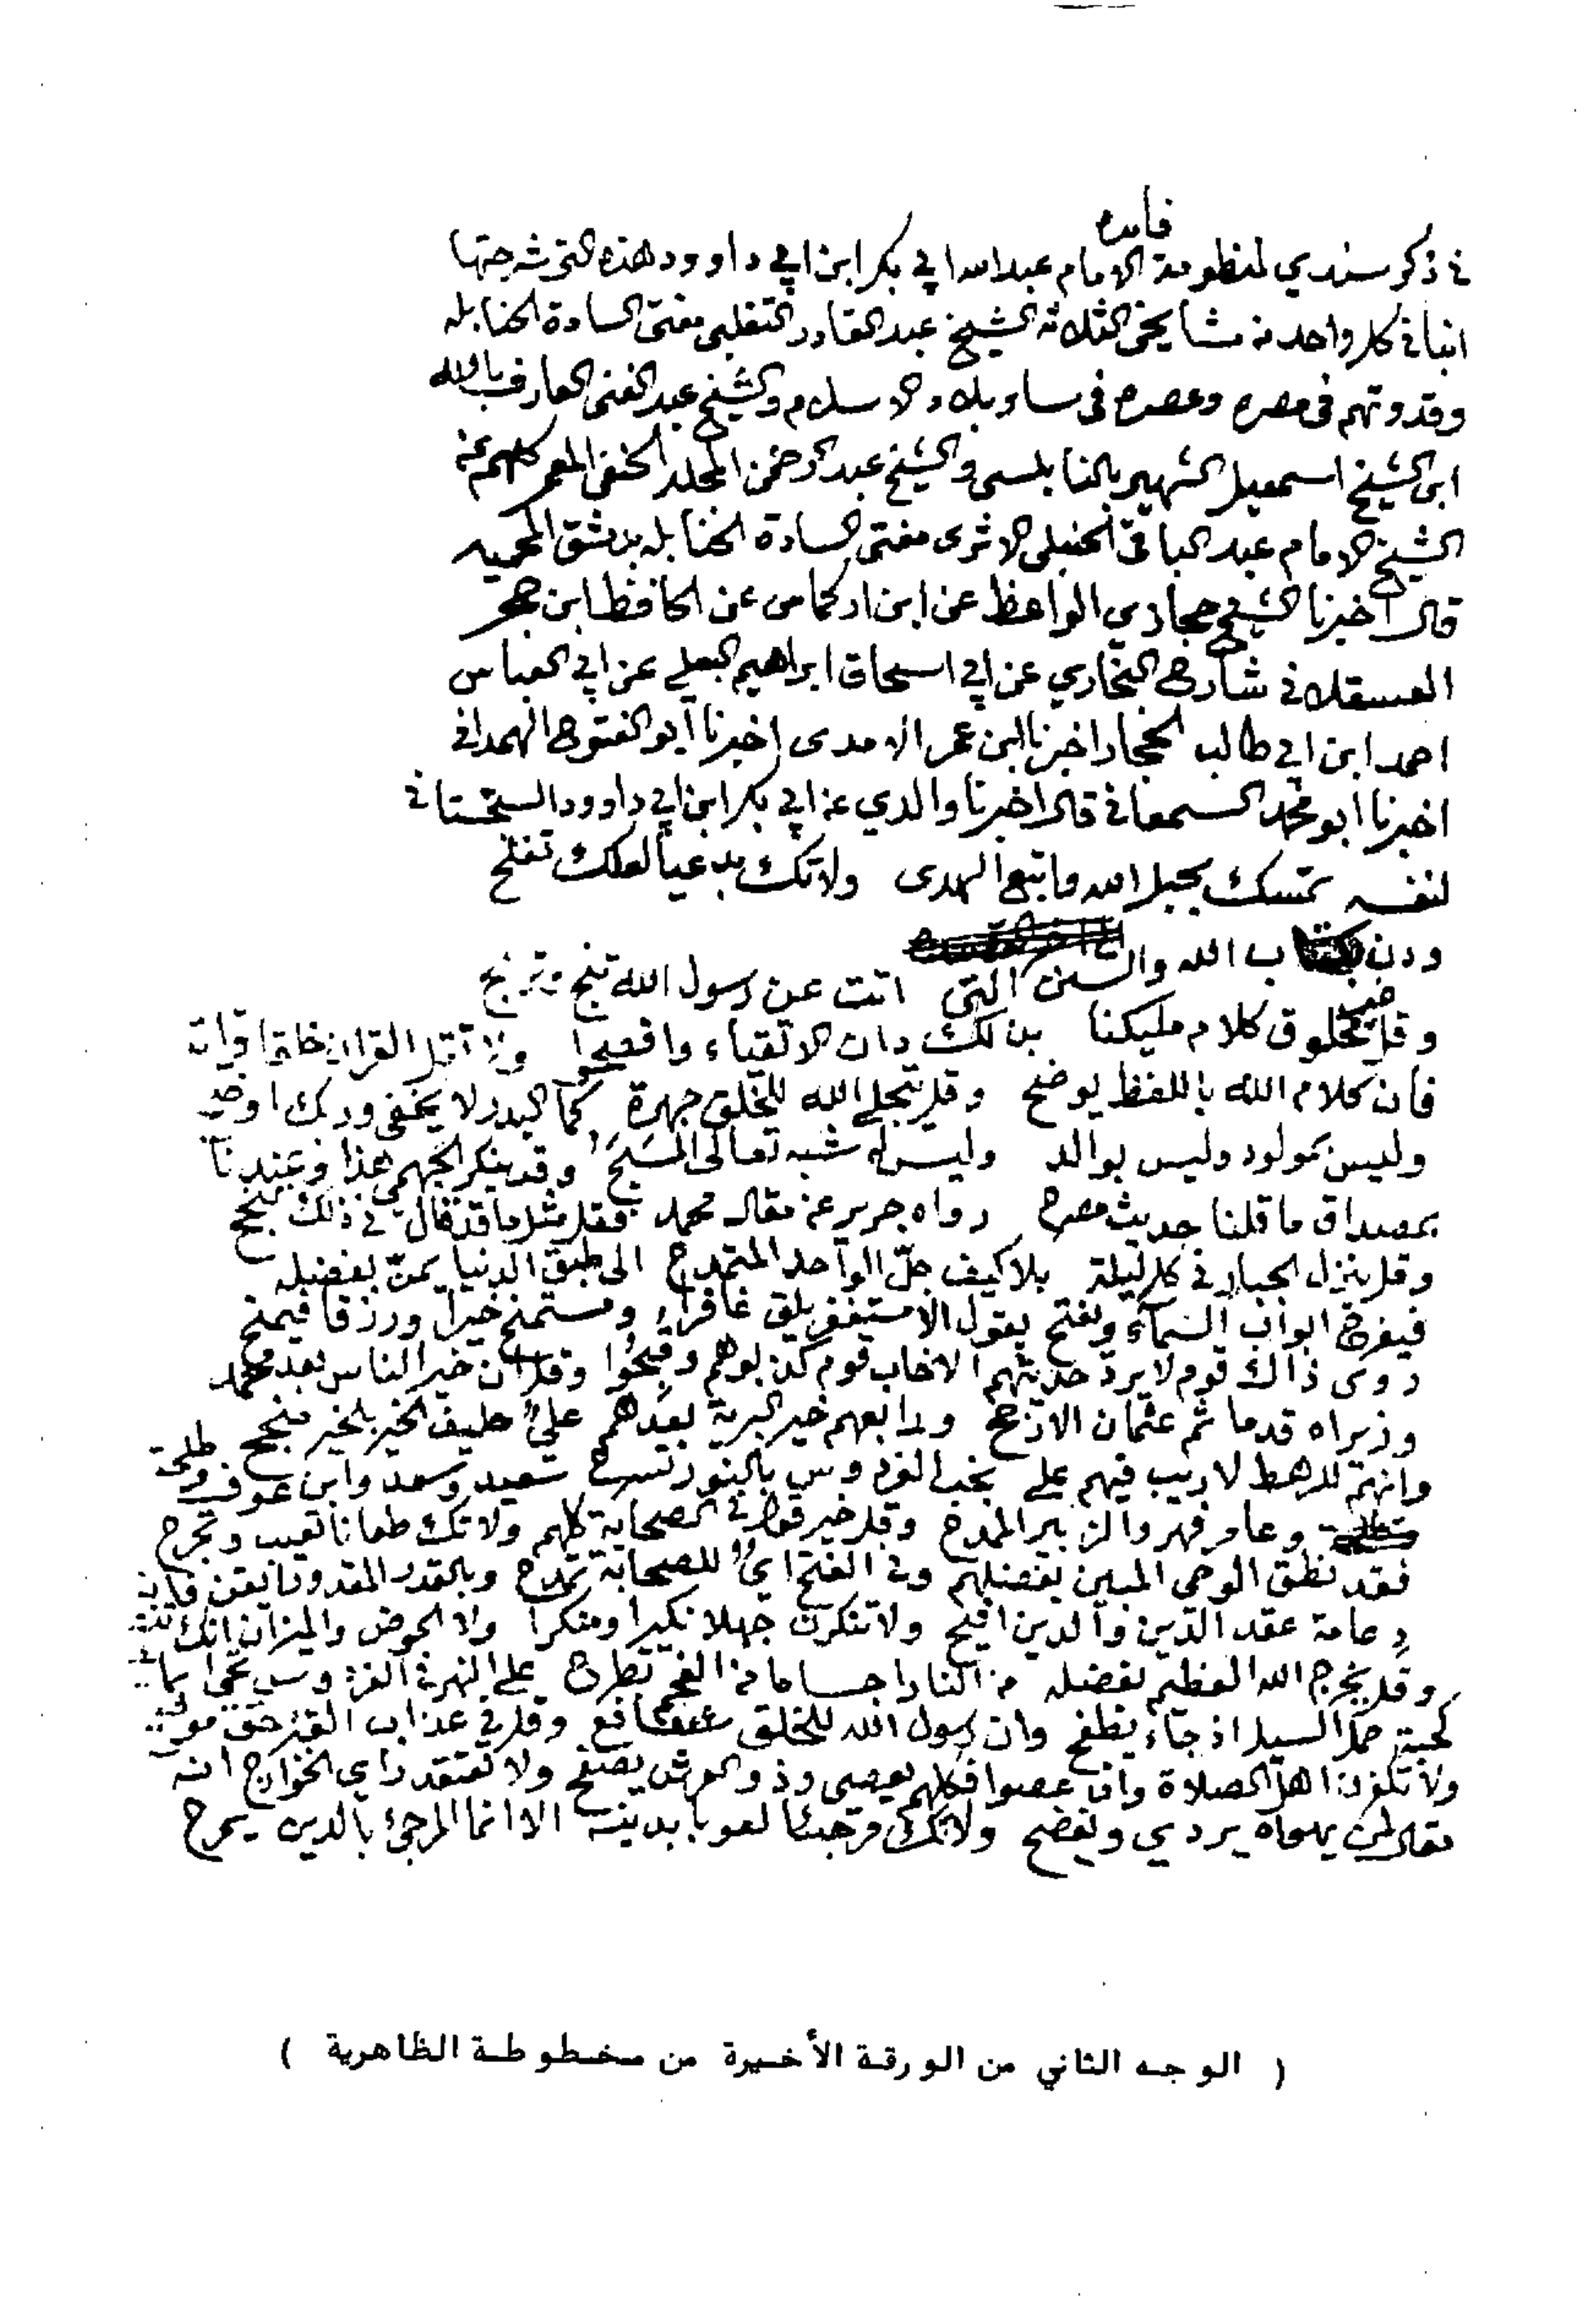 فايده
في ذكر سندي لمنظومة الامام عبد الله ابي بكر ابن ابي داوود هذه التي شرحتها
انباني كل واحد من مشايخي الثلاثه الشيخ عبد القادر التغلبي مفتي السادة الحنابله
وقدوتهم في مصره وعصره في ساير بلاد الاسلام والشيخ عبد الغني العارف بالله
ابن الشيخ اسمعيل الشهير بالنابلسي والشيخ عبد الرحمن المجلد الحنفي المعمر كلهم عن
الشيخ الامام عبد الباقي الحنبلي الاثري مفتي السادة الحنابله بدمشق المحميه
قال اخبرنا الشيخ حجازي الواعظ عن ابن اركماس عن الحافظ ابن حجر
العسقلاني شارح البخاري عن ابي اسحاق ابراهيم البعلي عن ابي العباس
احمد ابن ابي طالب الحجار اخبرنا ابن عمر الامدي اخبرنا ابو الفتوح الهمداني
اخبرنا ابو محمد السمعاني قال اخبرنا والدي عن ابي بكر ابن ابي داوود السجستاني
لنفسه تمسك بحبل الله واتبع الهدى ولا تك بدعيا لعلك تفلح
ودن بكتاب الله والسنن التي اتت عن رسول الله تنج وتربح
وقل غير مخلوق كلام مليكنا بذلك دان الاتقياء وافصحوا ولا تقل القران خلقا قراته
فان كلام الله باللفظ يوضح وقل يتجلى الله للخلق جهرة كما البدر لا يخفى وربك اوضح
وليس بمولود وليس بوالد وليس له شبه تعالى المسبح وقد ينكر الجهمي هذا وعندنا
بمصداق ما قلنا حديث مصرح رواه جرير عن مقال محمد فقل مثل ما قد قال في ذلك تنجح
وقل ينزل الجبار في كل ليلة بلا كيف جل الواحد المتمدح الى طبق الدنيا يمن بفضله
فيفرج ابواب السماء وتفتح يقول الا مستغفر يلق غافرا ومستمنح خيرا ورزقا فيمنح
روى ذاك قوم لا يرد حديثهم الا خاب قوم كذبوهم وقبحوا وقل ان خير الناس بعد محمد
وزيراه قدما ثم عثمان الارجح ورابعهم خير البرية بعدهم علي حليف الخير بالخير منجح
وانهم للرهط لا ريب فيهم على نجب الفردوس بالنور تسرح سعيد وسعد وابن عوف وطلحة
وعامر فهر والزبير الممدح وقل خير قول في الصحابة كلهم ولا تك طعانا تعيب وتجرح
فقد نطق الوحي المبين بفضلهم وفي الفتح اي للصحابة تمدح وبالقدر المقدور ايقن فانه
دعامة عقد الدين والدين افيح ولا تنكرن جهلا نكيرا ومنكرا ولا الحوض والميزان انك تنصح
وقل يخرج الله العظيم بفضله من النار اجساما من الفحم تطرح على النهر في الفردوس تحيا بمائه
كحبة حمل السيل اذ جاء يطفح وان رسول الله للخلق شافع وقل في عذاب القبر حق موضح
ولا تكفرن اهل الصلاة وان عصوا فكلهم يعصي وذو العرش يصفح ولا تعتقد راي الخوارج انه
مقال لمن يهواه يردي ويفضح ولا تك مرجئا لعوبا بدينه الا انما المرجئ بالدين يمرح
( الوجه الثاني من الورقة الأخيرة من مخطوطة الظاهرية )